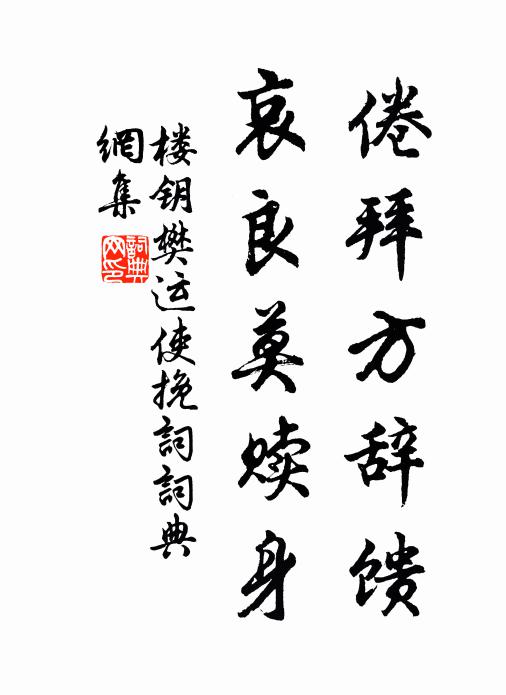 倦拜方辞馈
哀良莫赎身
楼钥樊运使挽词词典
網集
詞典
网印